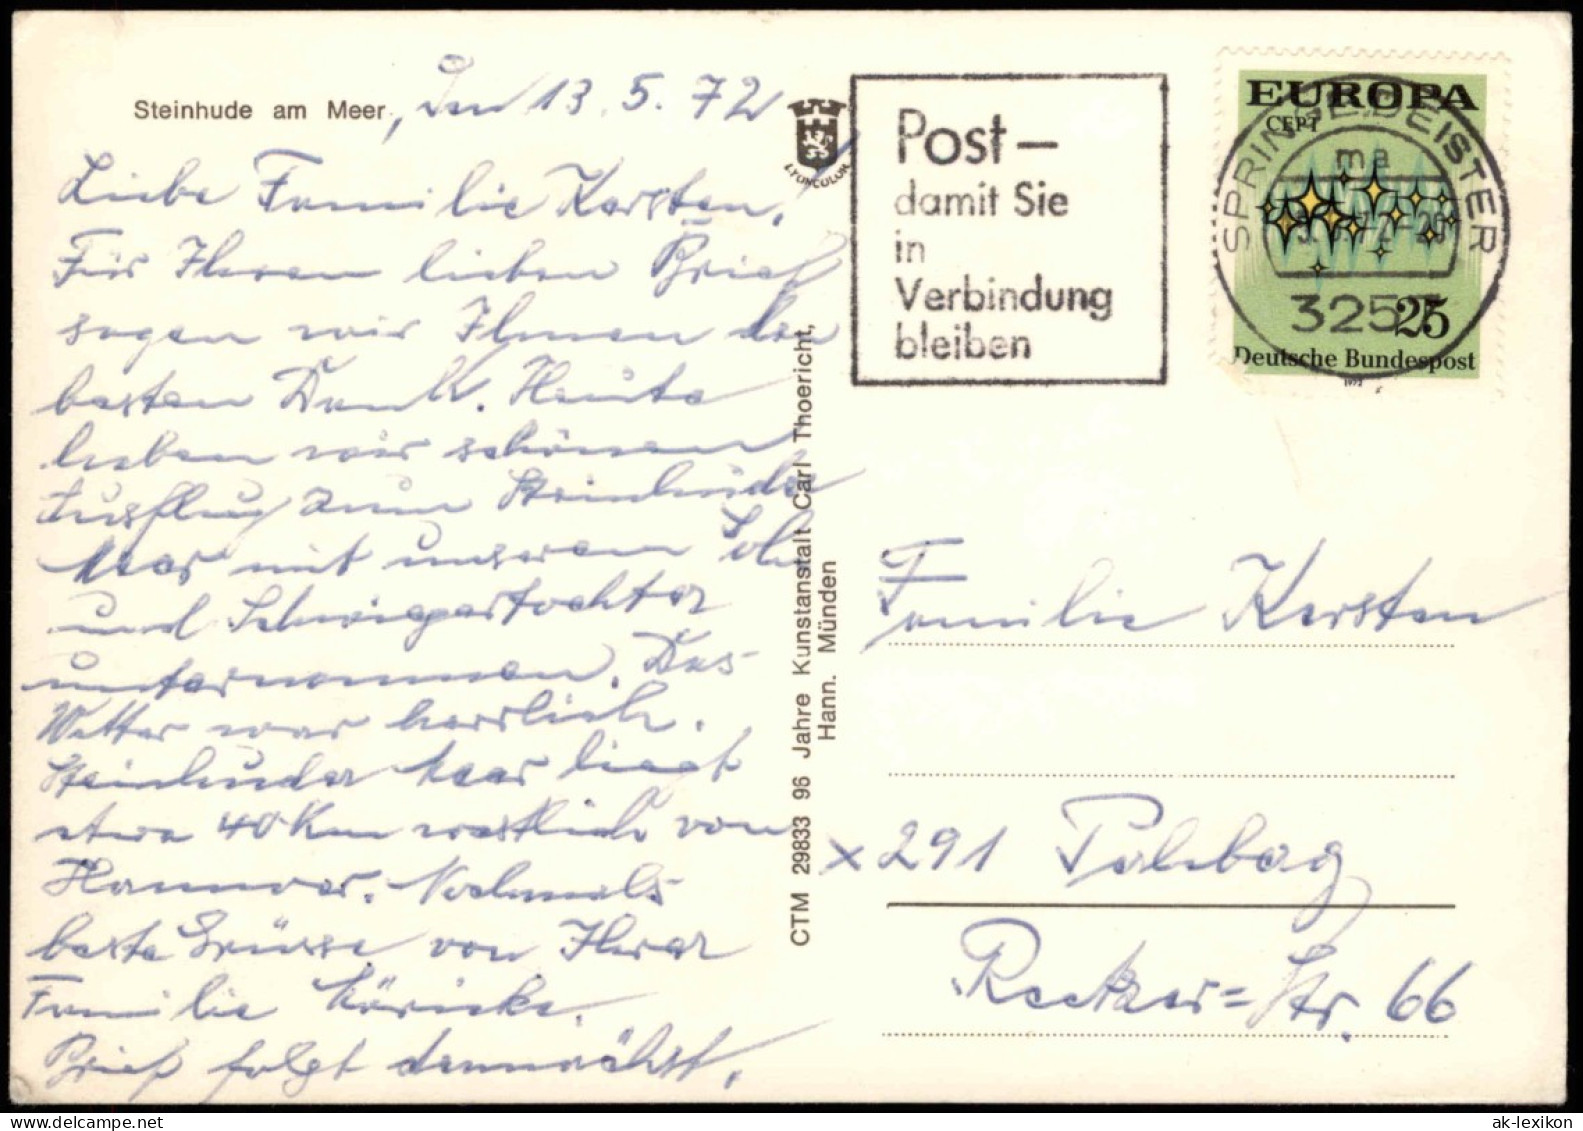 Steinhude am Meer, den 13. 5. 72
Liebe Familie Kersten,
Für Ihren lieben Brief
sagen wir Ihnen den
besten Dank. Heute
haben wir schönen
Ausflug zum Steinhuder
Meer mit unserem Sohn
und Schwiegertochter
unternommen. Das
Wetter war herrlich.
Steinhuder Meer liegt
etwa 40 Km westlich von
Hannover. Nochmals
beste Grüsse von Ihrer
Familie
Brief folgt demnächst.
LYONCOLOR
CTM 29833 96 Jahre Kunstanstalt Carl Thoericht,
Hann. Münden
Post –
damit Sie
in
Verbindung
bleiben
EUROPA
CEPT
25
Deutsche Bundespost
1972
SPRINGE, DEISTER
ma
3257
Familie Kersten
x 291
Str. 66
ak-lexikon.com